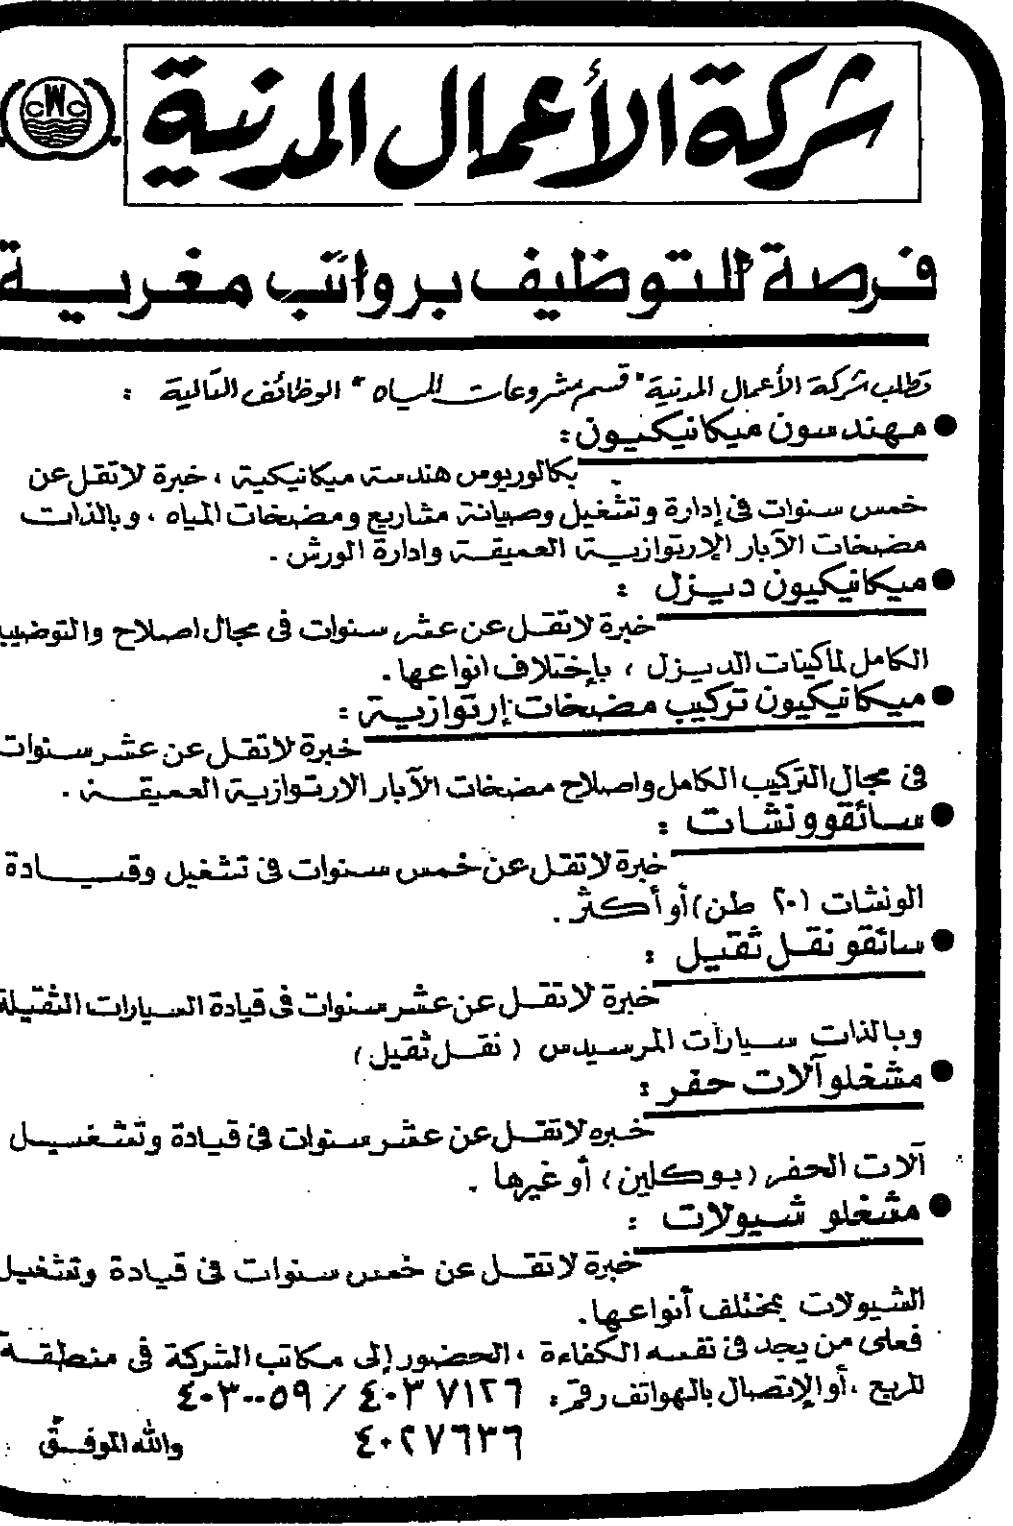 شركة الأعمال المدنية
CWC
فرصة للتوظيف برواتب مغرية
تطلب شركة الأعمال المدنية "قسم مشروعات المياه" الوظائف التالية :
● مهندسون ميكانيكيون:
بكالوريوس هندسة ميكانيكية ، خبرة لاتقل عن
خمس سنوات في إدارة وتشغيل وصيانة مشاريع ومضخات المياه ، وبالذات
مضخات الآبار الإرتوازية العميقة وادارة الورش .
● ميكانيكيون ديزل :
خبرة لاتقل عن عشر سنوات في مجال اصلاح والتوضيب
الكامل لماكينات الديزل ، بإختلاف انواعها .
● ميكانيكيون تركيب مضخات إرتوازية :
خبرة لاتقل عن عشر سنوات
في مجال التركيب الكامل واصلاح مضخات الآبار الارتوازية العميقة .
● سائقو ونشات :
خبرة لاتقل عن خمس سنوات في تشغيل وقيادة
الونشات (٢٠ طن) أو أكثر .
● سائقو نقل ثقيل :
خبرة لاتقل عن عشر سنوات في قيادة السيارات الثقيلة
وبالذات سيارات المرسيدس (نقل ثقيل)
● مشغلو آلات حفر :
خبره لاتقل عن عشر سنوات في قيادة وتشغيل
آلات الحفر (بوكلين) أو غيرها .
● مشغلو شيولات :
خبرة لاتقل عن خمس سنوات في قيادة وتشغيل
الشيولات بمختلف أنواعها .
فعلى من يجد في نفسه الكفاءة ، الحضور إلى مكاتب الشركة في منطقة
الريع ، أو الإتصال بالهواتف رقم : ٤٠٣٧١٢٦ / ٤٠٣٠٠٥٩
٤٠٢٧٦٣٦
والله الموفق